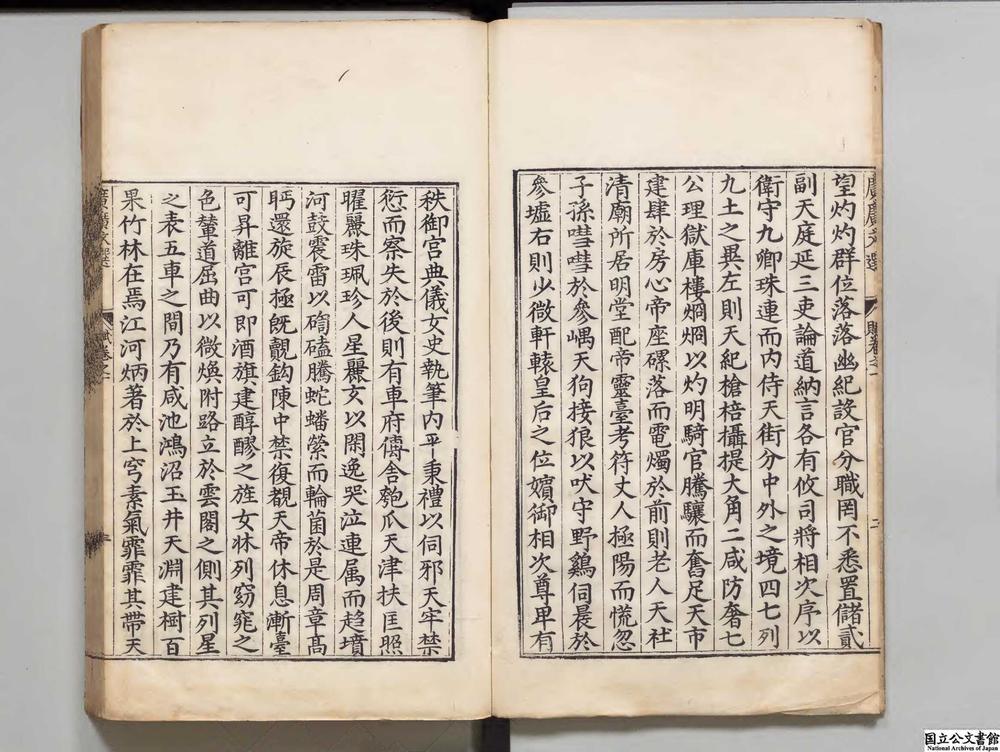 廣廣文選
賦卷之一
二
望灼灼群位落落幽紀設官分職罔不悉置儲貳
副天庭延三吏論道納言各有攸司將相次序以
衛守九卿珠連而内侍天街分中外之境四七列
九土之異左則天紀槍棓攝提大角二咸防奢七
公理獄庫樓烱烱以灼明騎官騰驤而奮足天市
建肆於房心帝座磥落而電燭於前則老人天社
清廟所居明堂配帝靈臺考符丈人極陽而慌忽
子孫嘒嘒於參嵎天狗接狼以吠守野鷄伺晨於
參墟右則少微軒轅皇后之位嬪御相次尊卑有
秩御宮典儀女史執筆内平秉禮以伺邪天牢禁
愆而察失於後則有車府傳舍匏瓜天津扶匡照
曜麗珠珮珍人星麗玄以閑逸哭泣連属而趨墳
河鼓震雷以砏磕騰蛇蟠縈而輪菌於是周章髙
眄還旋辰極旣覿鈎陳中禁復覩天帝休息漸臺
可昇離宮可即酒旗建醇醪之旌女牀列窈窕之
色輦道屈曲以微煥附路立於雲閣之側其列星
之表五車之間乃有咸池鴻沼玉井天淵建樹百
果竹林在焉江河炳著於上穹素氣霏霏其帶天
廣廣文選
賦卷之一
国立公文書館
National Archives of Japan